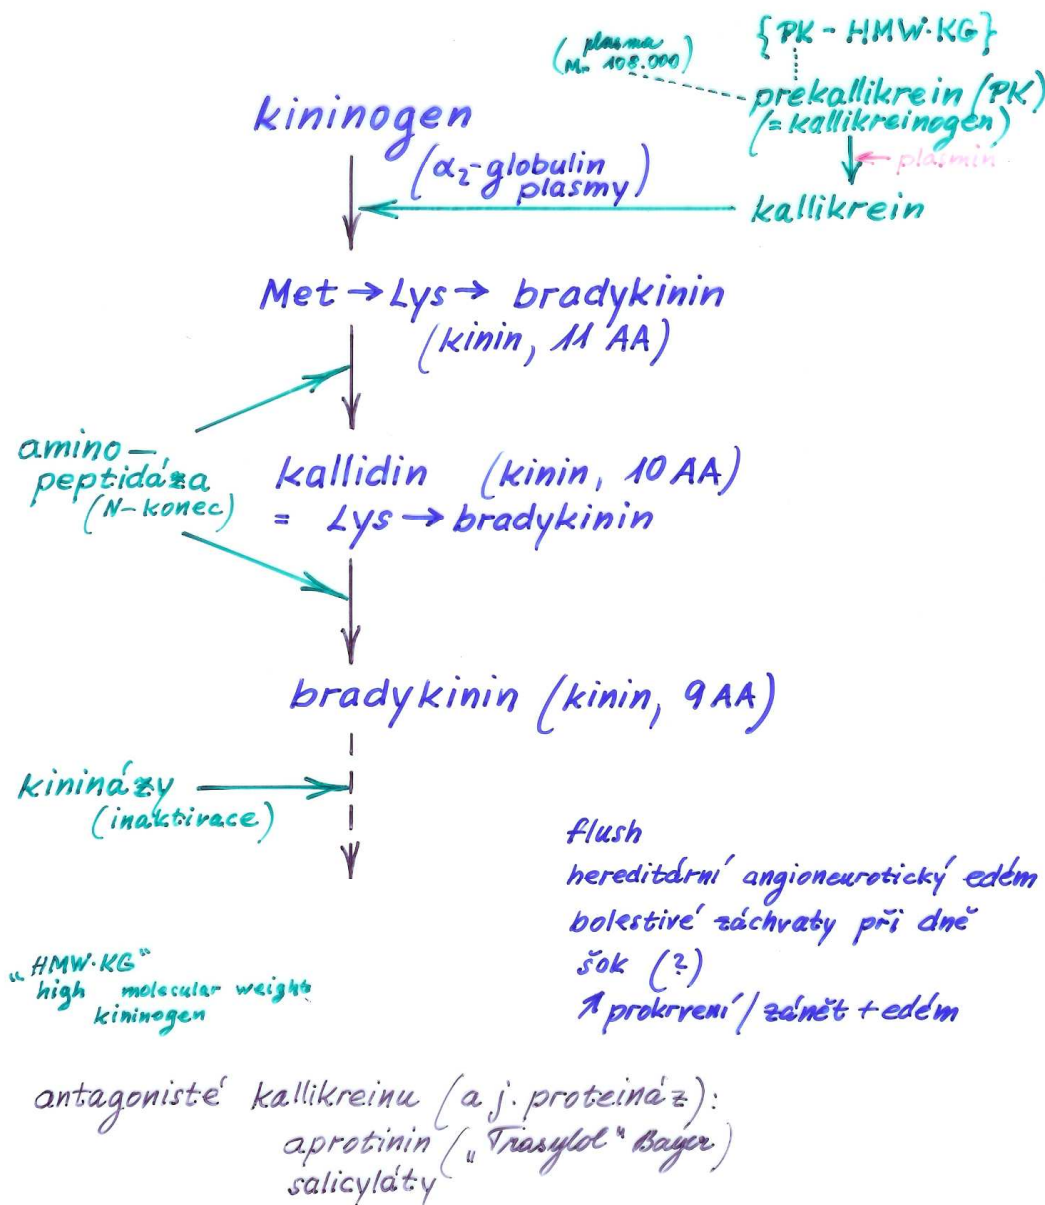 {PK - HMW·KG}
(plasma
Mr 108.000)
prekallikrein (PK)
(= kallikreinogen)
← plasmin
kallikrein
kininogen
(α₂-globulin
plasmy)
Met → Lys → bradykinin
(kinin, 11 AA)
amino-
peptidáza
(N-konec)
kallidin (kinin, 10 AA)
= Lys → bradykinin
bradykinin (kinin, 9 AA)
kininázy
(inaktivace)
flush
hereditární angioneurotický edém
bolestivé záchvaty při dně
šok (?)
↑ prokrvení / zánět + edém
„HMW·KG“
high molecular weight
kininogen
antagonisté kallikreinu (a j. proteináz):
aprotinin („Trasylol“ Bayer)
salicyláty